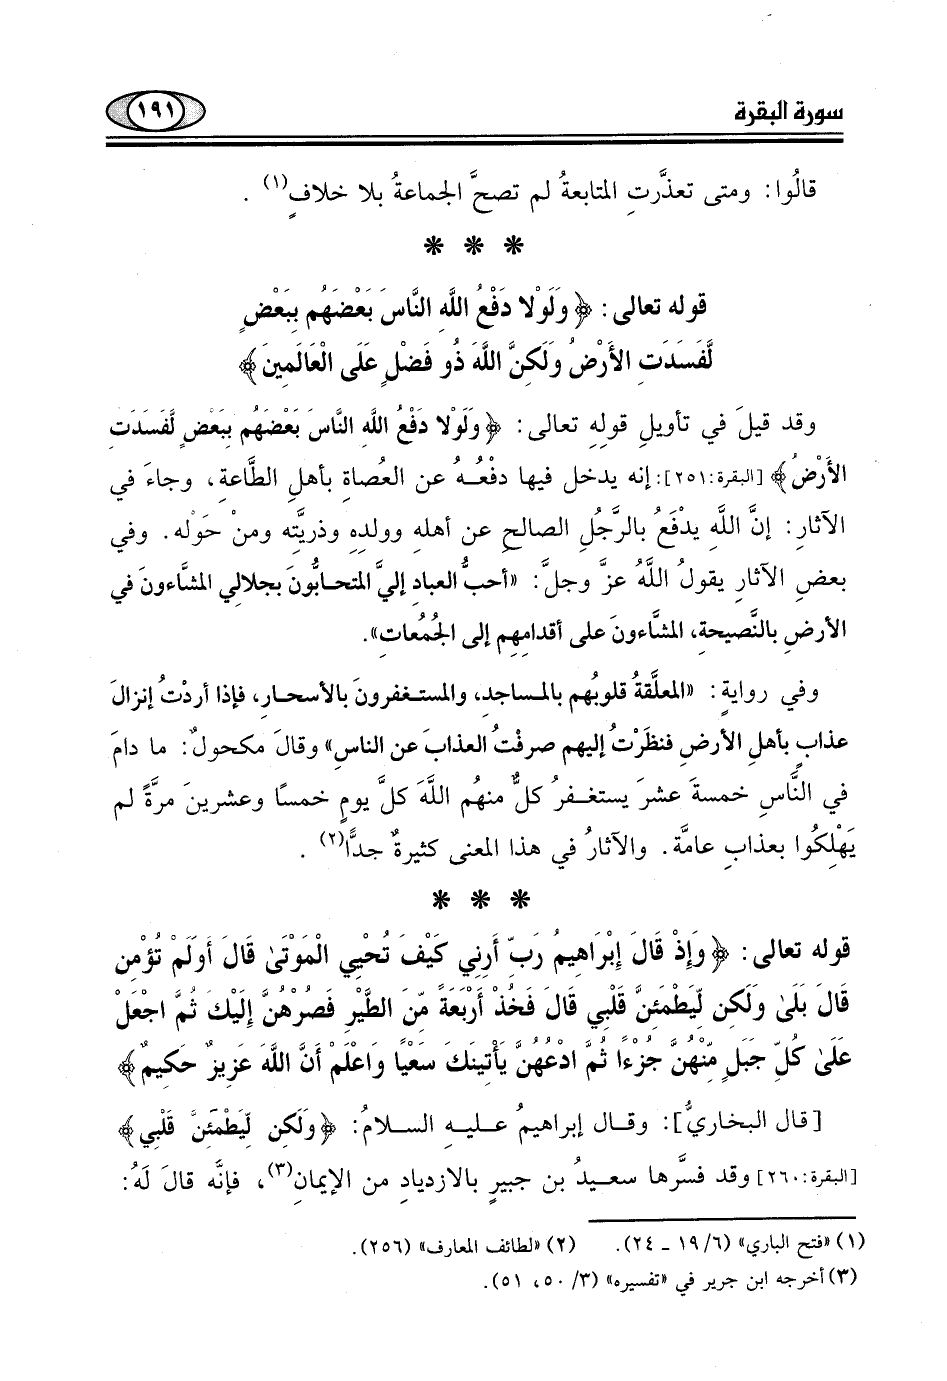 سورة البقرة
١٩١
قالُوا: ومتى تعذَّرتِ المتابعةُ لم تصحَّ الجماعةُ بلا خلافٍ(١) .
* * *
قوله تعالى: ﴿وَلَوْلا دَفْعُ اللَّهِ النَّاسَ بَعْضَهُم بِبَعْضٍ
لَّفَسَدَتِ الأَرْضُ وَلَكِنَّ اللَّهَ ذُو فَضْلٍ عَلَى الْعَالَمِينَ﴾
وقد قيلَ في تأويلِ قولِهِ تعالى: ﴿وَلَوْلا دَفْعُ اللَّهِ النَّاسَ بَعْضَهُم بِبَعْضٍ لَّفَسَدَتِ
الأَرْضُ﴾ [البقرة:٢٥١]: إنه يدخل فيها دفْعُهُ عن العُصاةِ بأهلِ الطَّاعةِ، وجاءَ في
الآثارِ: إنَّ اللَّهِ يدْفَعُ بالرَّجُلِ الصالحِ عن أهلهِ وولدِهِ وذريَّتِه ومنْ حَوْلَه. وفي
بعضِ الآثارِ يقولُ اللَّهُ عزَّ وجلَّ: «أحبُّ العبادِ إليَّ المتحابُّونَ بجلالي المشَّاءونَ في
الأرضِ بالنَّصيحةِ، المشَّاءونَ على أقدامِهِم إلى الجُمُعاتِ».
وفي روايةٍ: «المعلَّقةُ قلوبُهم بالمساجدِ، والمستغفرونَ بالأسحارِ، فإذا أردْتُ إنزالَ
عذابٍ بأهلِ الأرضِ فنظَرْتُ إليهم صرفْتُ العذابَ عن الناسِ» وقالَ مكحولٌ: ما دامَ
في النَّاسِ خمسةَ عشرَ يستغفرُ كلٌّ منهُم اللَّهَ كلَّ يومٍ خمسًا وعشرينَ مرَّةً لم
يَهْلِكُوا بعذابٍ عامَّة. والآثارُ في هذا المعنى كثيرةٌ جدًّا(٢) .
* * *
قوله تعالى: ﴿وَإِذْ قَالَ إِبْرَاهِيمُ رَبِّ أَرِنِي كَيْفَ تُحْيِي الْمَوْتَىٰ قَالَ أَوَلَمْ تُؤْمِن
قَالَ بَلَىٰ وَلَكِن لِّيَطْمَئِنَّ قَلْبِي قَالَ فَخُذْ أَرْبَعَةً مِّنَ الطَّيْرِ فَصُرْهُنَّ إِلَيْكَ ثُمَّ اجْعَلْ
عَلَىٰ كُلِّ جَبَلٍ مِّنْهُنَّ جُزْءًا ثُمَّ ادْعُهُنَّ يَأْتِينَكَ سَعْيًا وَاعْلَمْ أَنَّ اللَّهَ عَزِيزٌ حَكِيمٌ﴾
[قال البخاريُّ]: وقال إبراهيمُ عليهِ السلامُ: ﴿وَلَكِن لِّيَطْمَئِنَّ قَلْبِي﴾
[البقرة:٢٦٠] وقد فسَّرها سعيدُ بن جبيرٍ بالازديادِ من الإيمانِ(٣)، فإنَّه قالَ لَهُ:
(١) «فتح الباري» (٦/ ١٩ ـ ٢٤). (٢) «لطائف المعارف» (٢٥٦).
(٣) أخرجه ابن جرير في «تفسيره» (٣/ ٥٠، ٥١).